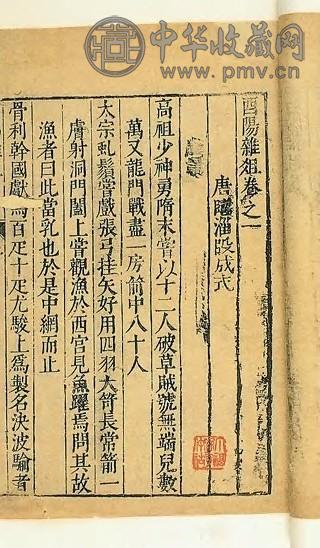 中华收藏网
www.pmv.cn
酉陽雜俎卷之一
唐臨淄段成式
高祖少神勇隋末嘗以十二人破草賊號無端兒數
萬又龍門戰盡一房箭中八十人
太宗虬鬚嘗戲張弓挂矢好用四羽大笴長常箭一
膚射洞門闔上嘗觀漁於西宮見魚躍焉問其故
漁者曰此當乳也於是中網而止
骨利幹國獻馬百疋十疋尤駿上爲製名決波騟者